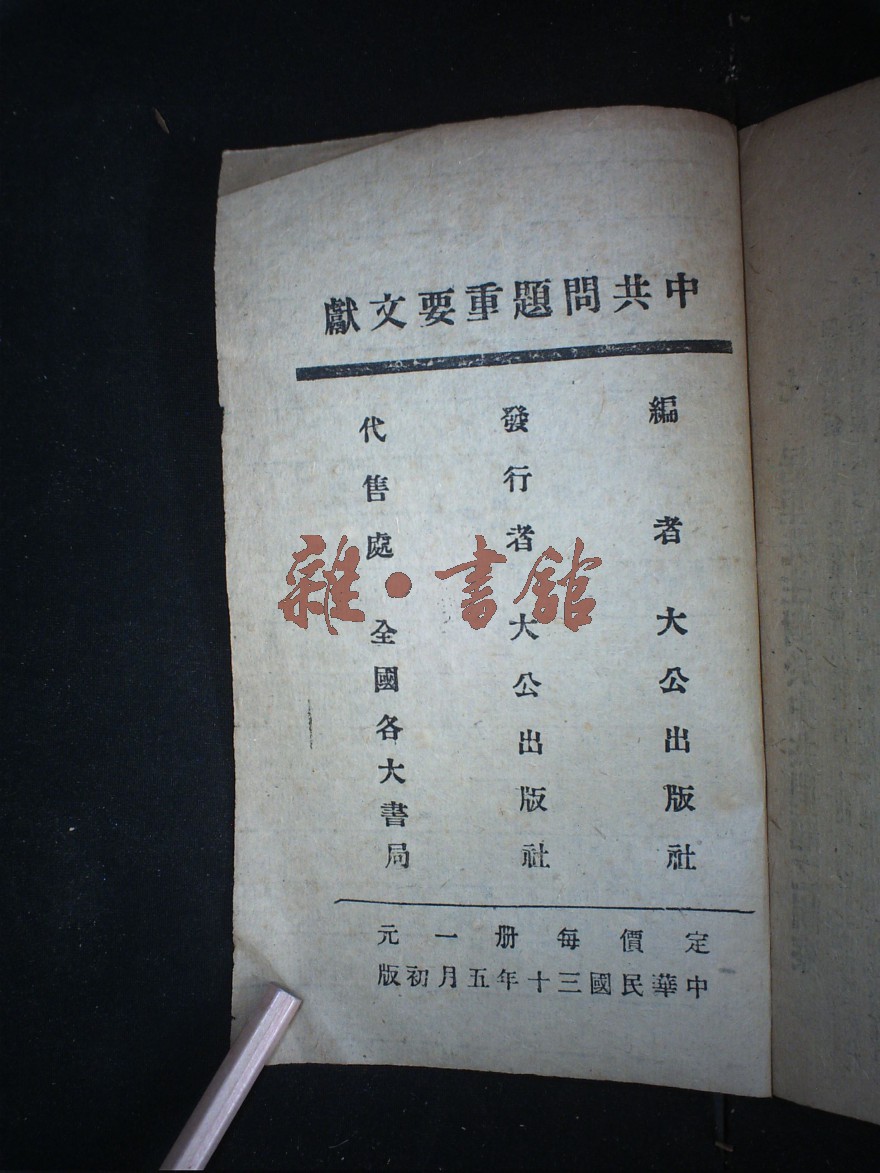 中共問題重要文獻
編者 大公出版社
發行者 大公出版社
代售處 全國各大書局
定價每册一元
中華民國三十年五月初版
雜·書館